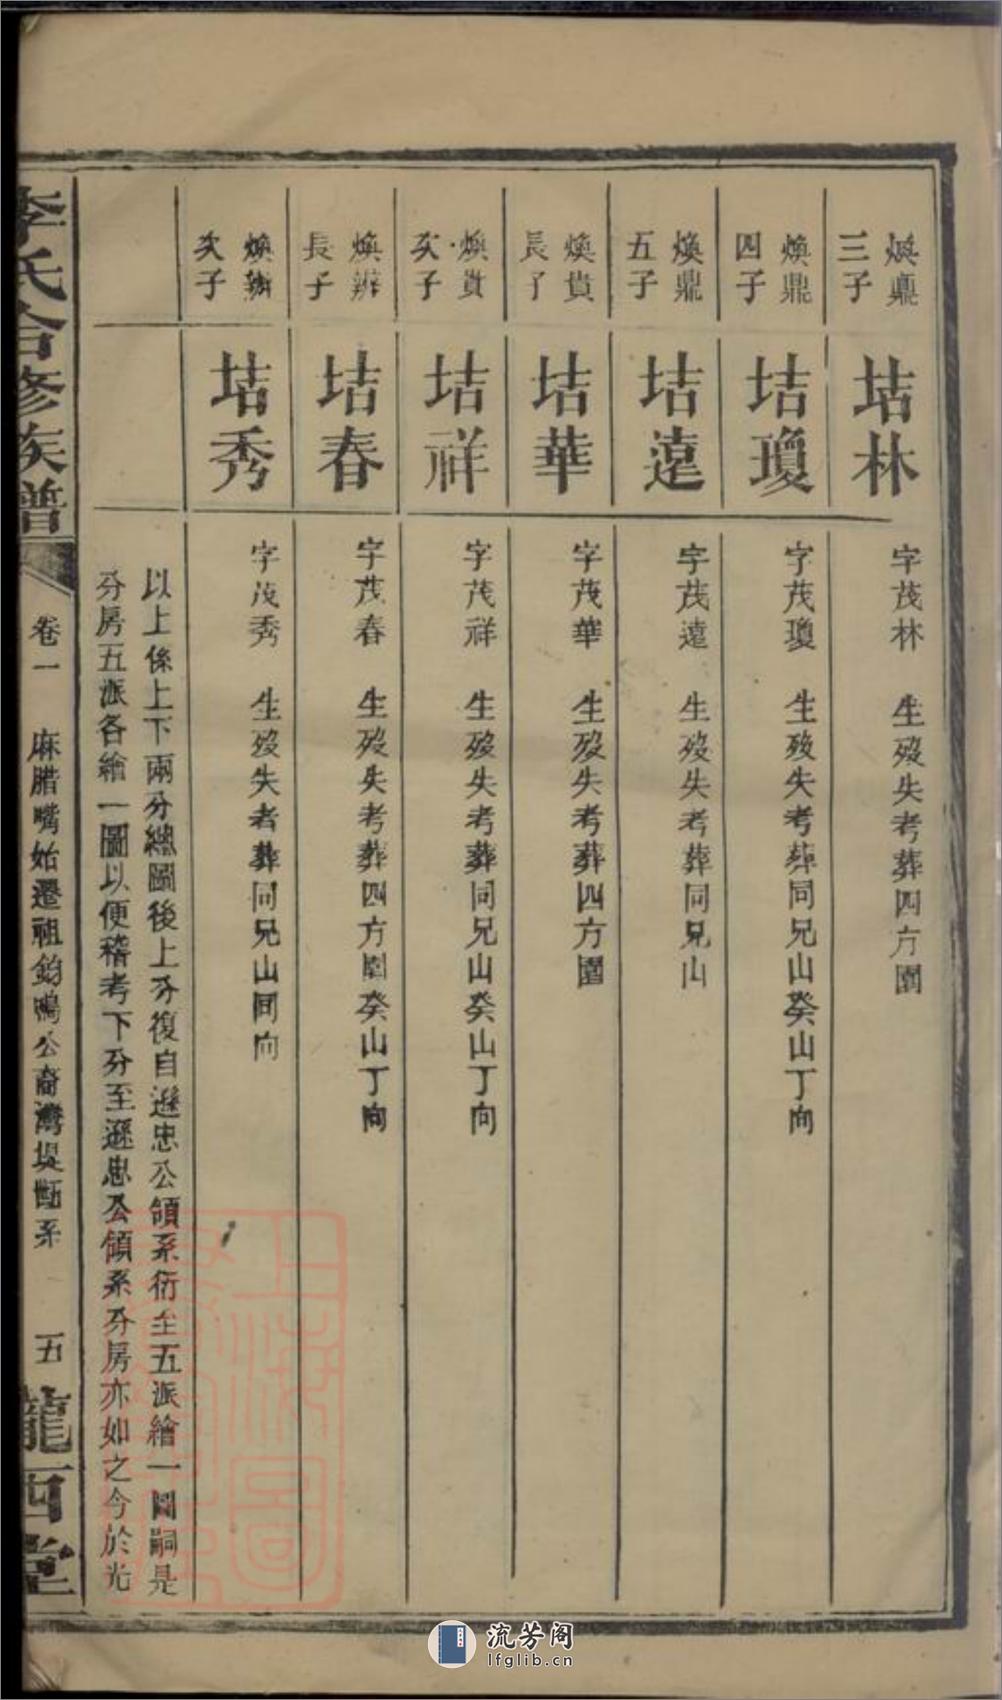 煥鼎
三子
㘶林
字茂林　生歿失考葬四方園
煥鼎
四子
㘶瓊
字茂瓊　生歿失考葬同兄山癸山丁向
煥鼎
五子
㘶遠
字茂遠　生歿失考葬同兄山
煥貴
長子
㘶華
字茂華　生歿失考葬四方園
煥貴
次子
㘶祥
字茂祥　生歿失考葬同兄山癸山丁向
煥辨
長子
㘶春
字茂春　生歿失考葬四方園癸山丁向
煥辨
次子
㘶秀
字茂秀　生歿失考葬同兄山同向
以上係上下兩分總圖後上分復自遜忠公領系衍至五派繪一圖嗣是
分房五派各繪一圖以便稽考下分至遜忠公領系分房亦如之今於光
李氏合修族譜
卷一　麻腊嘴始遷祖鈞鳴公裔灣堤系　五
隴西堂
上海圖
流芳阁
lfglib.cn